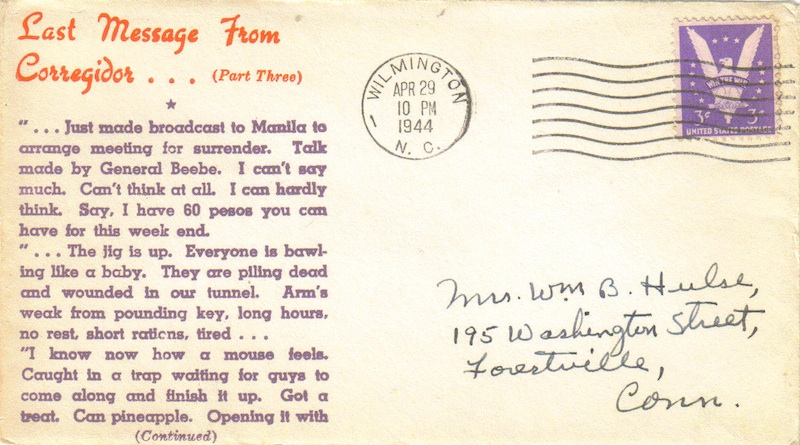 Last Message From
Corregidor . . . (Part Three)
". . . Just made broadcast to Manila to
arrange meeting for surrender. Talk
made by General Beebe. I can't say
much. Can't think at all. I can hardly
think. Say, I have 60 pesos you can
have for this week end.
". . . The jig is up. Everyone is bawl-
ing like a baby. They are piling dead
and wounded in our tunnel. Arm's
weak from pounding key, long hours,
no rest, short rations, tired . . .
"I know now how a mouse feels.
Caught in a trap waiting for guys to
come along and finish it up. Got a
treat. Can pineapple. Opening it with
(Continued)
WILMINGTON
APR 29
10 PM
1944
N. C.
WIN THE WAR
3¢ 3¢
UNITED STATES POSTAGE
Mrs. Wm B. Hulse,
195 Washington Street,
Forestville,
Conn.